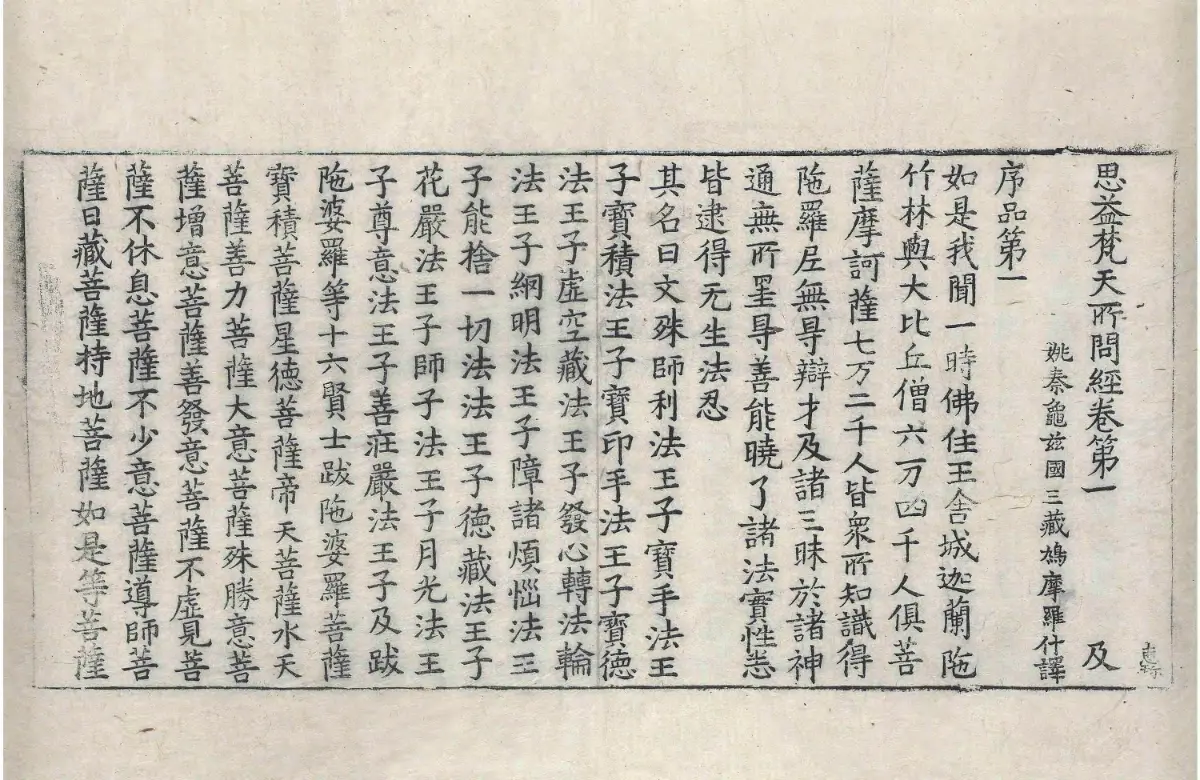 思益梵天所問經卷第一 及
姚秦龜兹國三藏鳩摩羅什譯
序品第一
如是我聞一時佛住王舍城迦蘭陁
竹林與大比丘僧六万四千人俱菩
薩摩訶薩七万二千人皆衆所知識得
陁羅尼無㝵辯才及諸三昧於諸神
通無所罣㝵善能曉了諸法實性悉
皆逮得无生法忍
其名曰文殊師利法王子寶手法王
子寶積法王子寶印手法王子寶德
法王子虛空藏法王子發心轉法輪
法王子網明法王子障諸煩惱法王
子能捨一切法法王子德藏法王子
花嚴法王子師子法王子月光法王
子尊意法王子善莊嚴法王子及跋
陁婆羅等十六賢士跋陁婆羅菩薩
寶積菩薩星德菩薩帝天菩薩水天
菩薩善力菩薩大意菩薩殊勝意菩
薩增意菩薩善發意菩薩不虛見菩
薩不休息菩薩不少意菩薩導師菩
薩日藏菩薩持地菩薩如是等菩薩